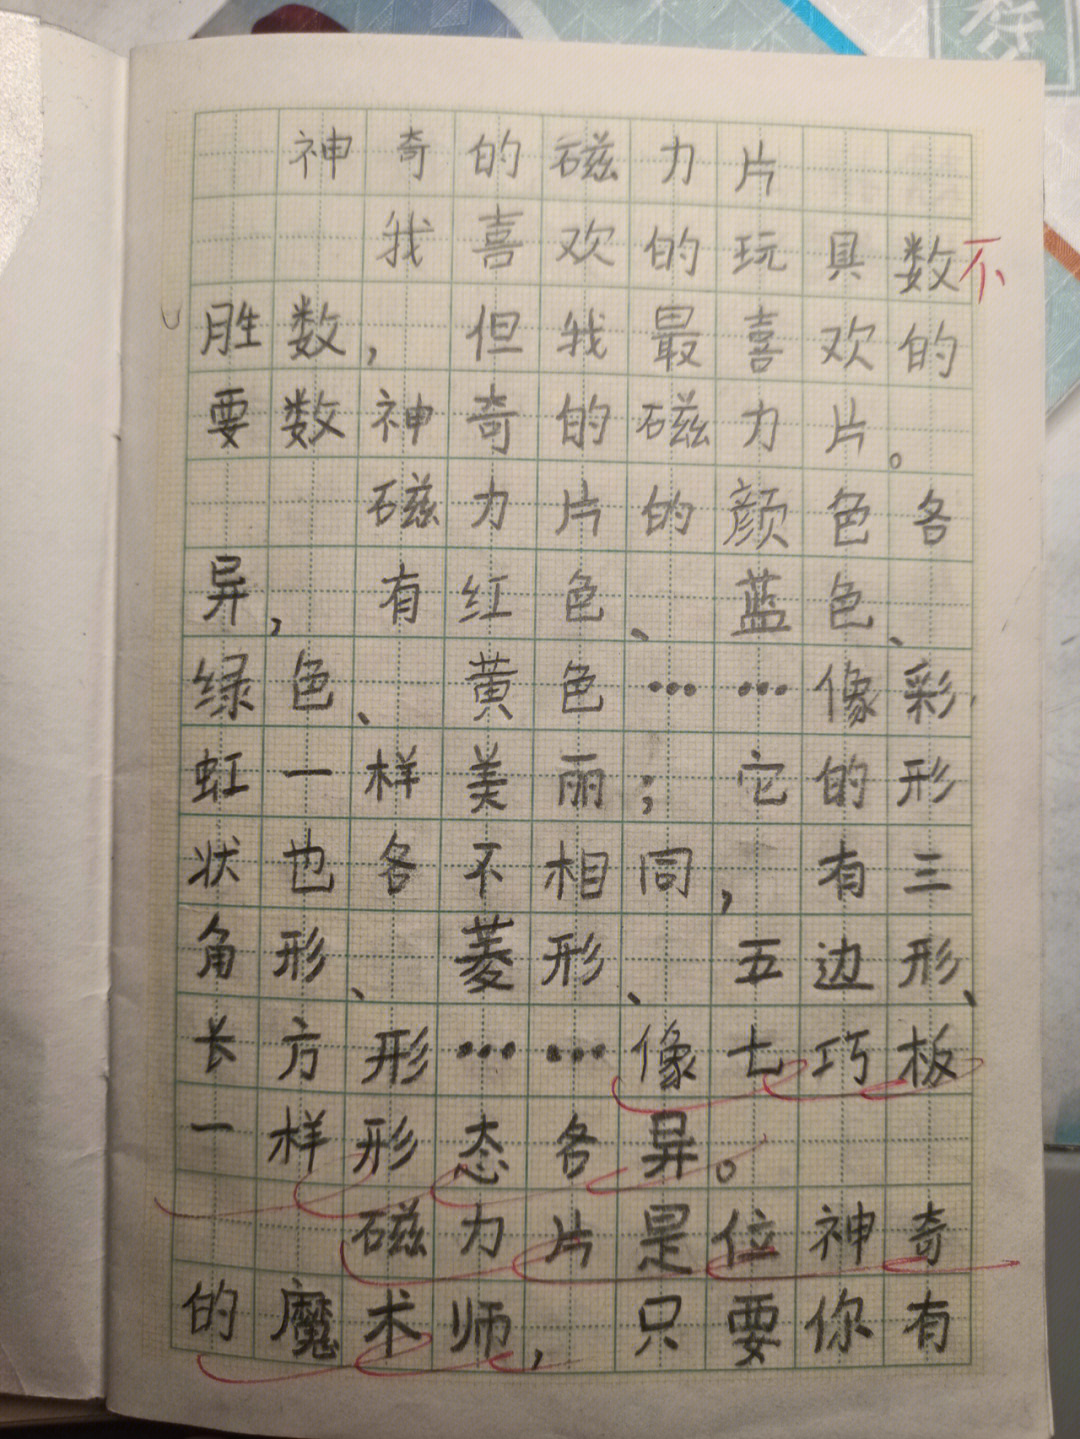 神奇的磁力片
我喜欢的玩具数不
胜数，但我最喜欢的
要数神奇的磁力片。
磁力片的颜色各
异，有红色、蓝色、
绿色、黄色……像彩
虹一样美丽；它的形
状也各不相同，有三
角形、菱形、五边形、
长方形……像七巧板
一样形态各异。
磁力片是位神奇
的魔术师，只要你有